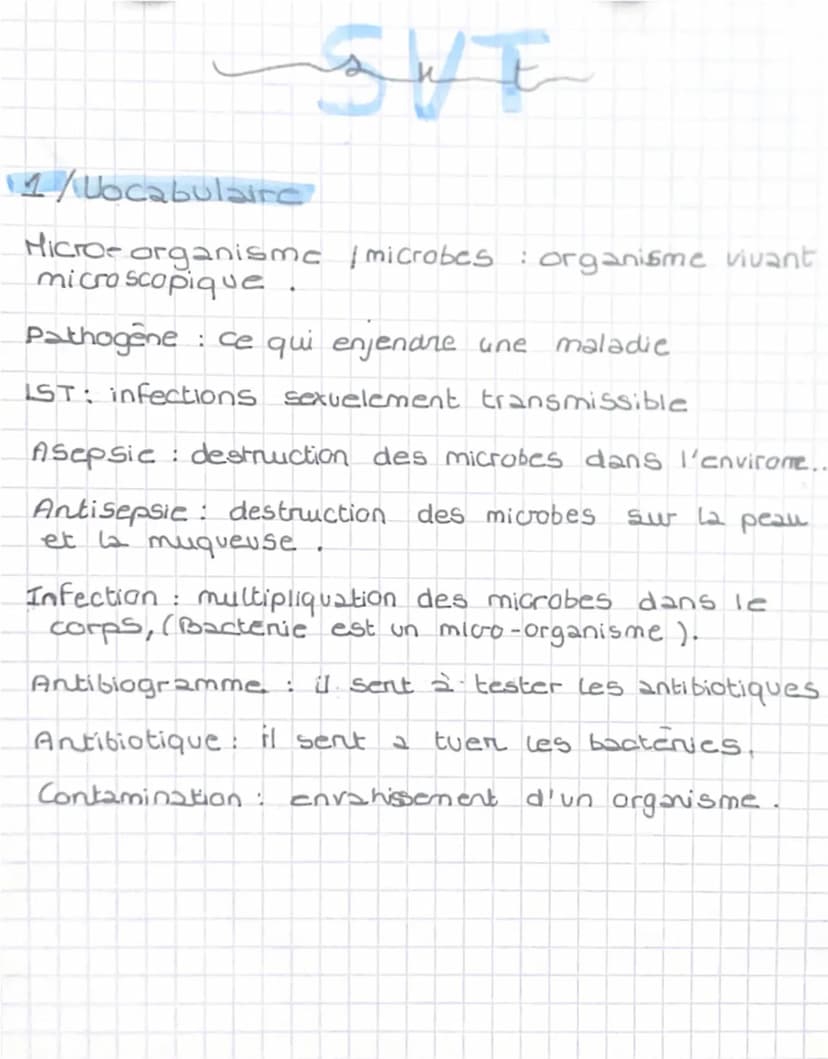 SVT
svt
1/Vocabulaire
Micro-organisme / microbes : organisme vivant
microscopique .
Pathogène : ce qui enjendre une maladie
IST : infections sexuelement transmissible
Asepsie : destruction des microbes dans l'environne..
Antisepsie : destruction des microbes sur la peau
et la muqueuse .
Infection : multipliquation des microbes dans le
corps, (Bacterie est un micro-organisme ).
Antibiogramme : il sert à tester les antibiotiques
Antibiotique : il sert a tuer les bactéries.
Contamination : envahissement d'un organisme .